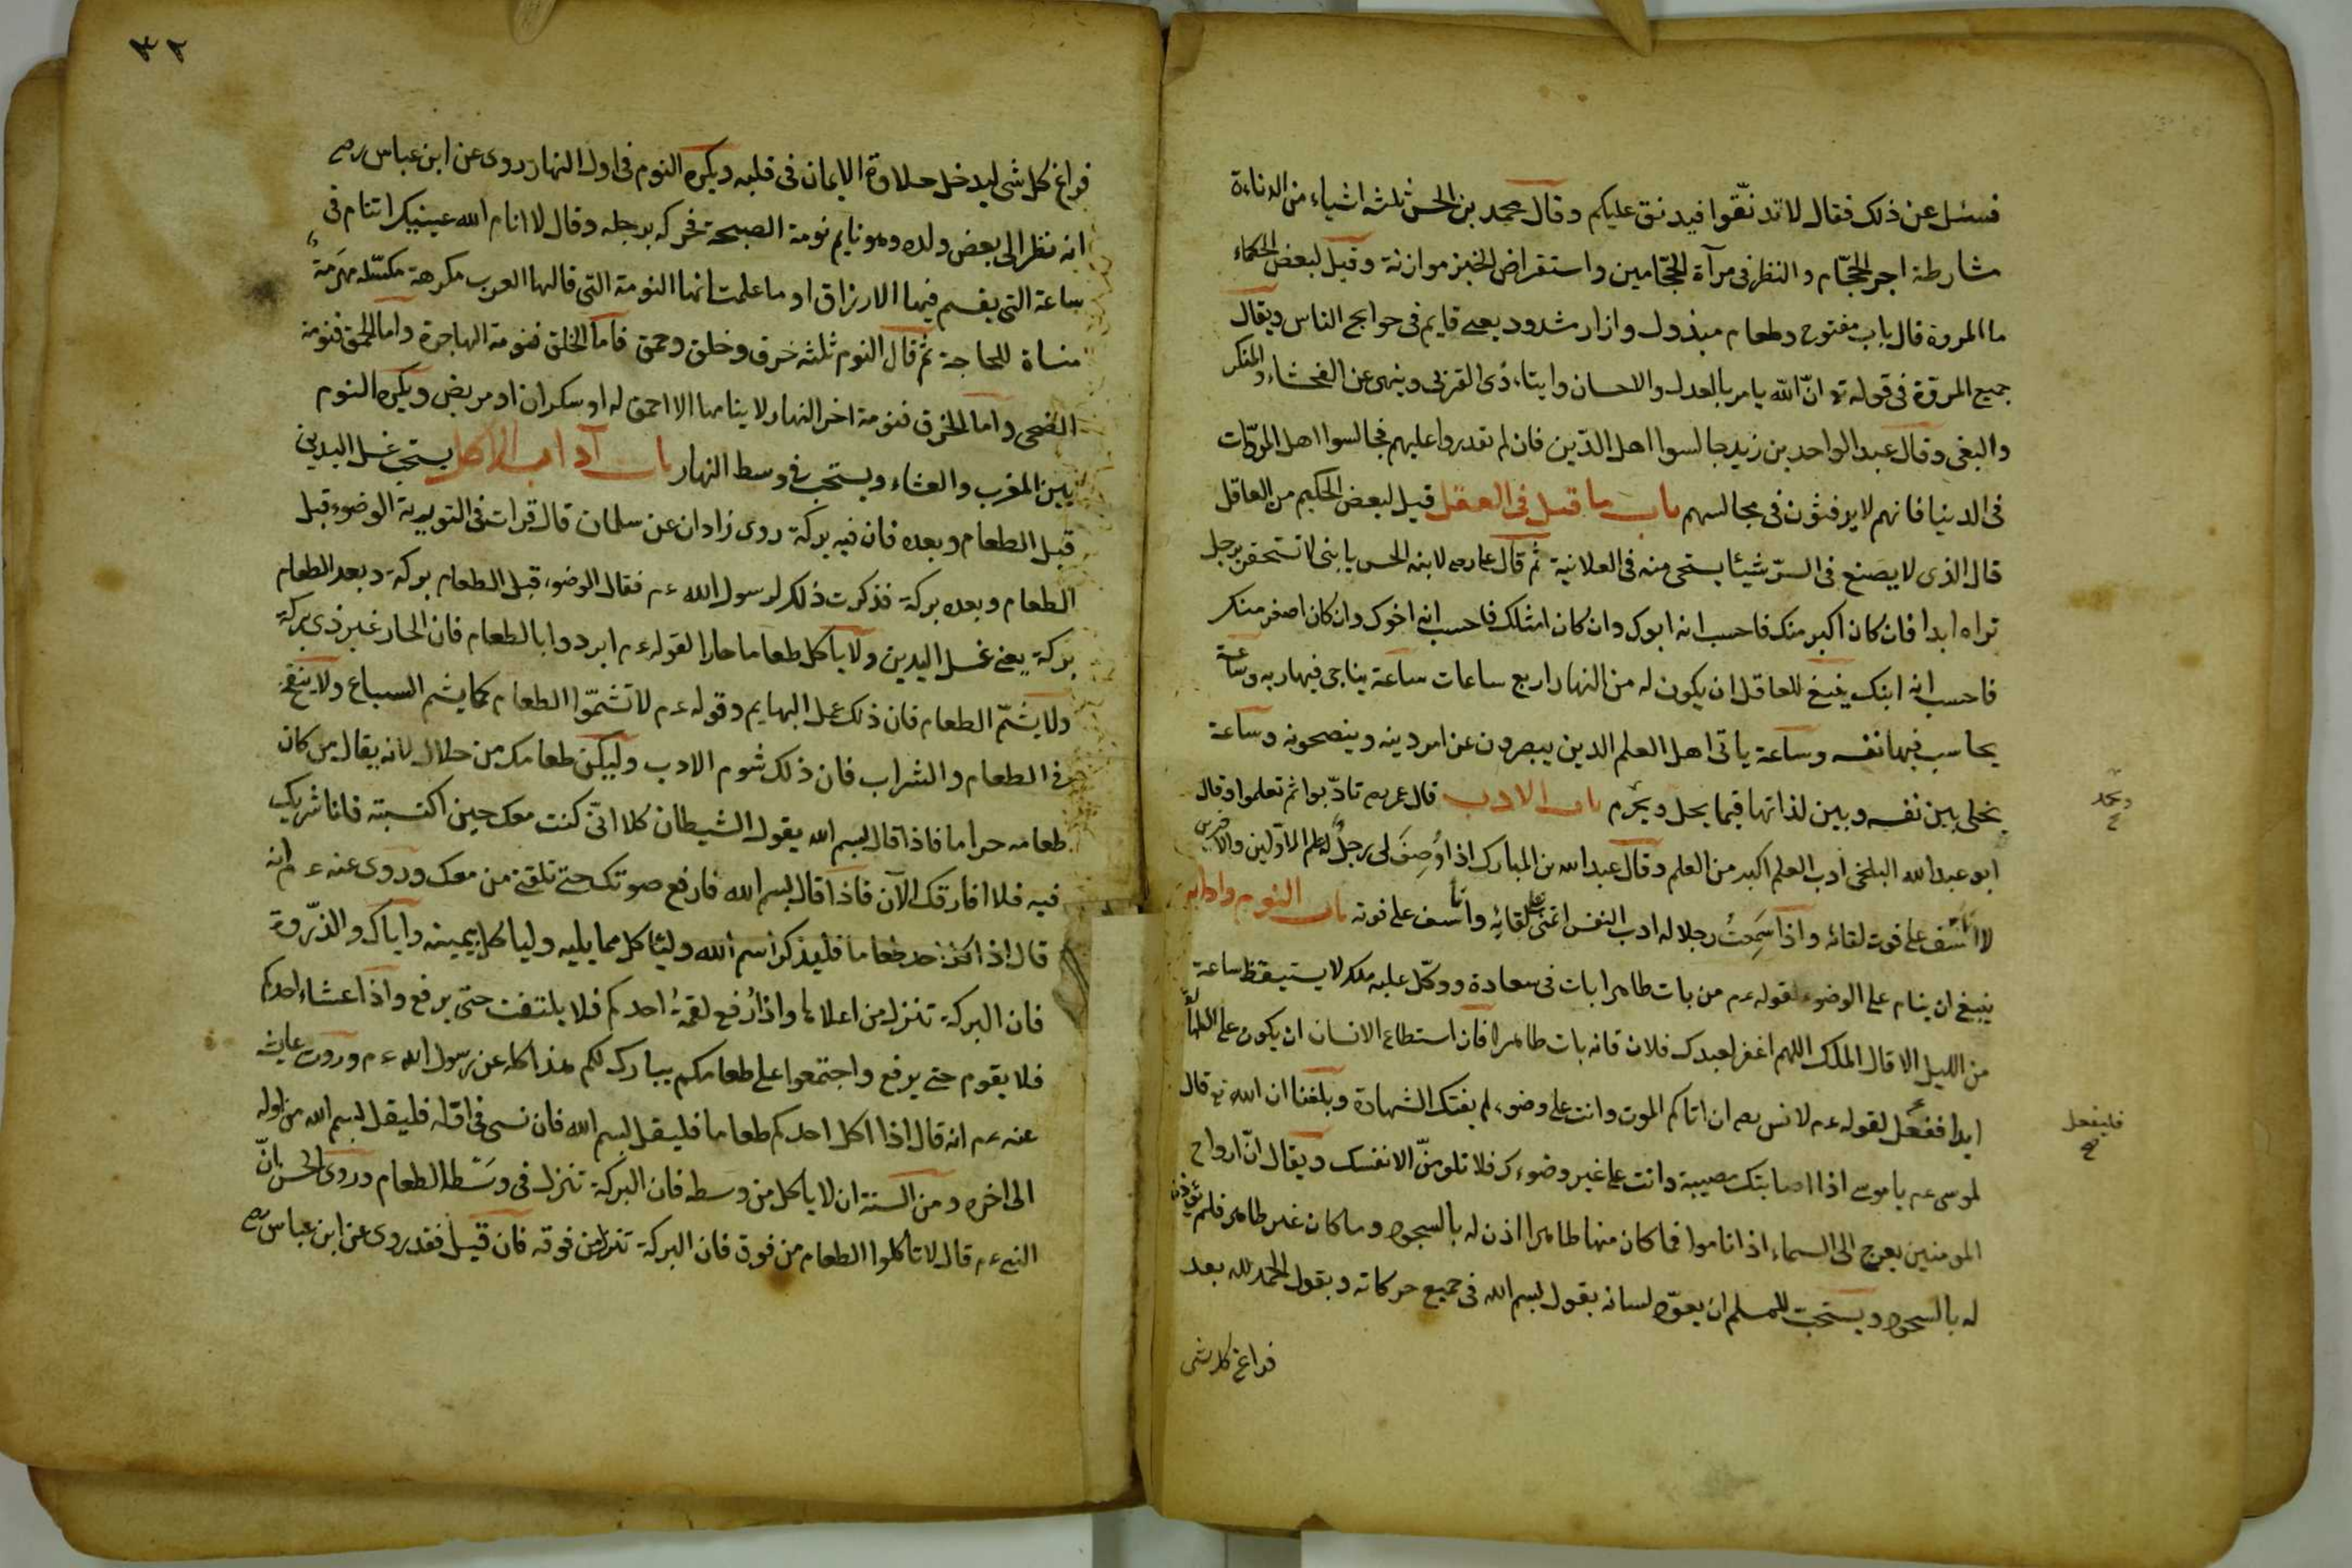 فسئل عن ذلك فقال لا تدنّقوا فيدنق عليكم وقال محمد بن الحسن ثلثة اشياء من الدناءة
مشارطة اجر الحجّام والنظر فى مرآة الحجّامين واستقراض الخبز موازنة وقيل لبعض الحكماء
ما المروة قال باب مفتوح وطعام مبذول وازار مشدود يعنى قايم فى حوايج الناس ويقال
جميع المروّة فى قوله تع انّ الله يامر بالعدل والاحسان وايتاء ذى القربى وينهى عن الفحشاء والمنكر
والبغى وقال عبد الواحد بن زيد جالسوا اهل الدّين فان لم تقدروا عليهم فجالسوا اهل المروّات
فى الدنيا فانهم لا يرفثون فى مجالسهم باب ما قيل فى العقل قيل لبعض الحكيم من العاقل
قال الذى لا يصنع فى السرّ شيئا يستحى منه فى العلانية ثم قال على رصه لابنه الحسن يا بنى لا تستحقرن برجل
تراه ابدا فان كان اكبر منك فاحسب انه ابوك وان كان امثلك فاحسب انه اخوك وان كان اصغر منكر
فاحسب انه ابنك ينبغى للعاقل ان يكون له من النهار اربع ساعات ساعة يناجى فيها ربه وساعة
يحاسب فيها نفسه وساعة ياتى اهل العلم الدين يبصرون عن امر دينه وينصحونه وساعة
يخلى بين نفسه وبين لذاتها فيما يحل ويحرم باب الادب قال عمر رصه تادّبوا ثم تعلموا وقال
ويحمد
ابو عبد الله البلخى ادب العلم اكبر من العلم وقال عبد الله بن المبارك اذا وُصِفَ لى رجلٌ له علم الاوّلين والآخرين
لا اتأسّف على فوت لقائه واذا سَمِعتُ رجلا له ادب النفس اتمنى على لقائه واتأسف على فوته باب النوم وادابه
ينبغى ان ينام على الوضوء لقوله ءم من بات طاهرا بات فى سعادة ووكّل عليه ملكر لا يستيقظ ساعة
من الليل الا قال الملك اللهم اغفر لعبدك فلان فانه بات طاهرا فان استطاع الانسان ان يكون على الطهارة
ابدا ففعل لقوله ءم لانس رصه ان اتاكم الموت وانت على وضوء لم يفتك الشهادة وبلغنا ان الله تع قال
فليفعل
لموسى ءم يا موسى اذا اصابتك مصيبة وانت على غير وضوءك فلا تلومنّ الا نفسك ويقال انّ ارواح
المومنين يعرج الى السماء اذا ناموا فما كان منها طاهرا اذن له بالسجود وما كان غير طاهر فلم يؤذن
له بالسجود ويستحبّ للمسلم ان يعوّد لسانه بقول بسم الله فى جميع حركاته وبقول الحمد لله بعد
فراغ كل شى
٣٢
فراغ كل شى ليدخل حلاوة الايمان فى قلبه ويكره النوم فى اول النهار روى عن ابن عباس رصه
انه نظر الى بعض ولده وهو نايم نومة الصبحة فحركه برجله وقال لا انام الله عينيكر اتنام فى
ساعة التى يقسم فيها الارزاق او ما علمت انها النومة التى قالها العرب مكرهة مكسّلة مهَرَمة
منساة للحاجة ثم قال النوم ثلثه خرق وخلق وحمق فاما الخلق فنومة الهاجرة واما الحمق فنومة
الضحى واما الخرق فنومة اخر النهار لا ينامها الا احمق له او سكران او مريض ويكره النوم
بين المغرب والعشاء ويستحب فى وسط النهار باب آداب الاكل يستحب غسل اليدين
قبل الطعام وبعده فان فيه بركة روى زادان عن سلمان قال قرات فى التوريه الوضوء قبل
الطعام وبعده بركة فذكرت ذلكر لرسول الله ءم فقال الوضوء قبل الطعام بركة وبعد الطعام
بركة يعنى غسل اليدين ولا ياكل طعاما حارا لقوله ءم ابردوا بالطعام فان الحار غير ذى بركة
ولا يشُمّ الطعام فان ذلك عمل البهايم وقوله ءم لا تشمّوا الطعام كما يشم السباع ولا ينفخ
فى الطعام والشراب فان ذلك شوم الادب وليكن طعامك من حلال لانه يقال من كان
طعامه حراما فاذا قال بسم الله يقول الشيطان كلا انّى كنت معك حين اكتسبته فانا شريك
فيه فلا افارقك الآن فاذا قال بسم الله فارفع صوتك حتى تلقى من معك وروى عنه ءم انه
قال اذا اخذ احد طعاما فليذكر اسم الله ولئاكل مما يليه ولياكل بيمينه واياك والذّروة
فان البركة تنزل من اعلاها واذا رُفع لقمةُ احدكم فلا يلتفت حتى يرفع واذا عشاء احدكم
فلا يقوم حتى يرفع واجتمعوا على طعامكم يبارك لكم هذا كله عن رسول الله ءم وروت عايشه
عنه ءم انه قال اذا اكل احدكم طعاما فليقل بسم الله فان نسى فى اوّله فليقل بسم الله من اوله
الى اخره ومن السنة ان لا ياكل من وسطه فان البركة تنزل فى وسَط الطعام وروى الحسن بانّ
النبى ءم قال لا تاكلوا الطعام من فوق فان البركة تنزل من فوقه فان قيل فقد روى عن ابن عباس رصه